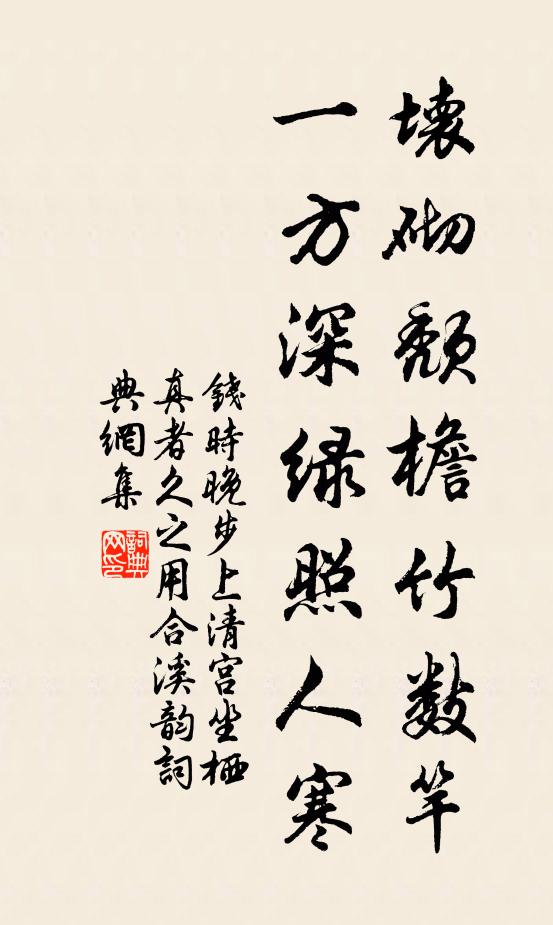 壞砌頹檐竹數竿
一方深绿照人寒
錢時晚步上清宮坐栖
真者久之用合溪韵詞
典網集
詞典网印